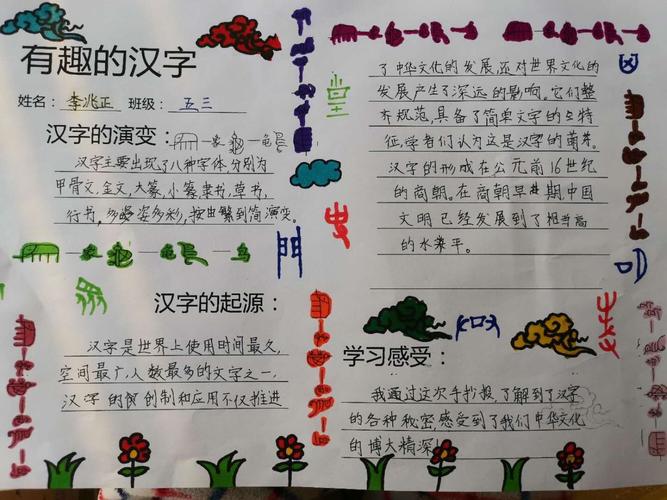 有趣的汉字
姓名：李兆正 班级：五三
汉字的演变：
汉字主要出现了八种字体，分别为
甲骨文，金文，大篆，小篆，隶书，草书，
行书，多姿多彩，按由繁到简演变。
汉字的起源：
汉字是世界上使用时间最久，
空间最广，人数最多的文字之一，
汉字的创制和应用不仅推进
了中华文化的发展，还对世界文化的
发展产生了深远的影响。它们整
齐规范，具备了简单文字的特
征，学者们认为这是汉字的萌芽。
汉字的形成在公元前16世纪
的商朝。在商朝早期中国
文明已经发展到了相当高
的水平。
学习感受：
我通过这次手抄报，了解到了汉字
的各种秘密，感受到了我们中华文化
的博大精深！